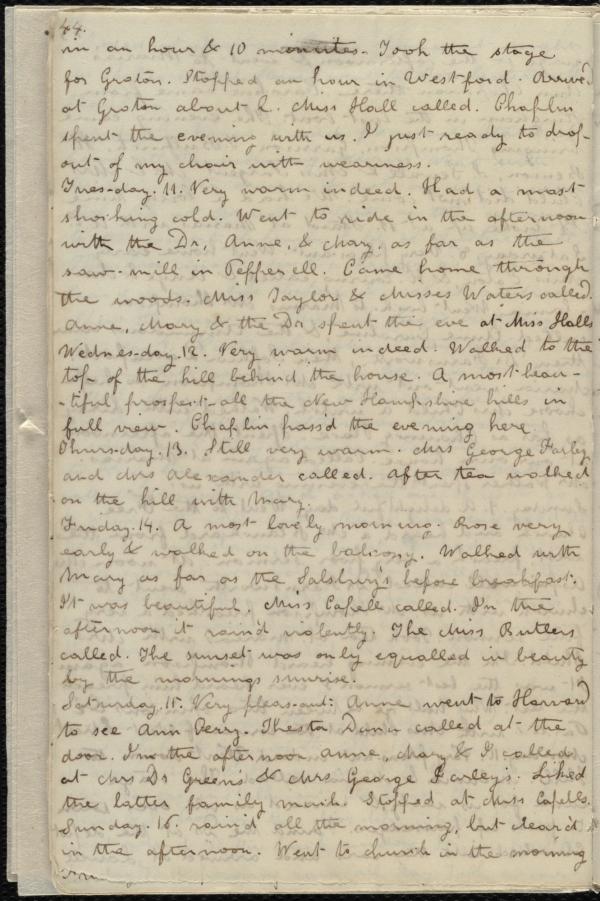 44.
in an hour & 10 minutes. Took the stage
for Groton. Stopped an hour in Westford. Arrived
at Groton about 2. Miss Hall called. Chaplin
spent the evening with us. I just ready to drop
out of my chair with weariness.
Tues-day. 11. Very warm indeed. Had a most
shocking cold. Went to ride in the afternoon
with the Dr, Anne, & Mary, as far as the
saw-mill in Pepperell. Came home through
the woods. Miss Taylor & Misses Waters called.
Anne, Mary & the Dr spent the eve at Miss Halls
Wednes-day. 12. Very warm indeed. Walked to the
top of the hill behind the house. A most beau-
-tiful prospect - all the New Hampshire hills in
full view. Chaplin pass'd the evening here
Thurs-day. 13. Still very warm. Mrs George Farley
and Mrs Alexander called. After tea walked
on the hill with Mary.
Friday. 14. A most lovely morning. Rose very
early & walked on the balcony. Walked with
Mary as far as the Salsbury's before breakfast.
It was beautiful. Miss Capell called. In the
afternoon it rain'd violently. The Miss Butlers
called. The sunset was only equalled in beauty
by the mornings sunrise.
Saturday. 15. Very pleas-ant. Anne went to Harvard
to see Ann Perry. Dana called at the
door. In the afternoon Anne, Mary & I called
at Mrs Dr Green's & Mrs George Farley's. Liked
the latter family much. Stopped at Miss Capells.
Sunday. 16. rain'd all the morning, but clear'd
in the afternoon. Went to church in the morning